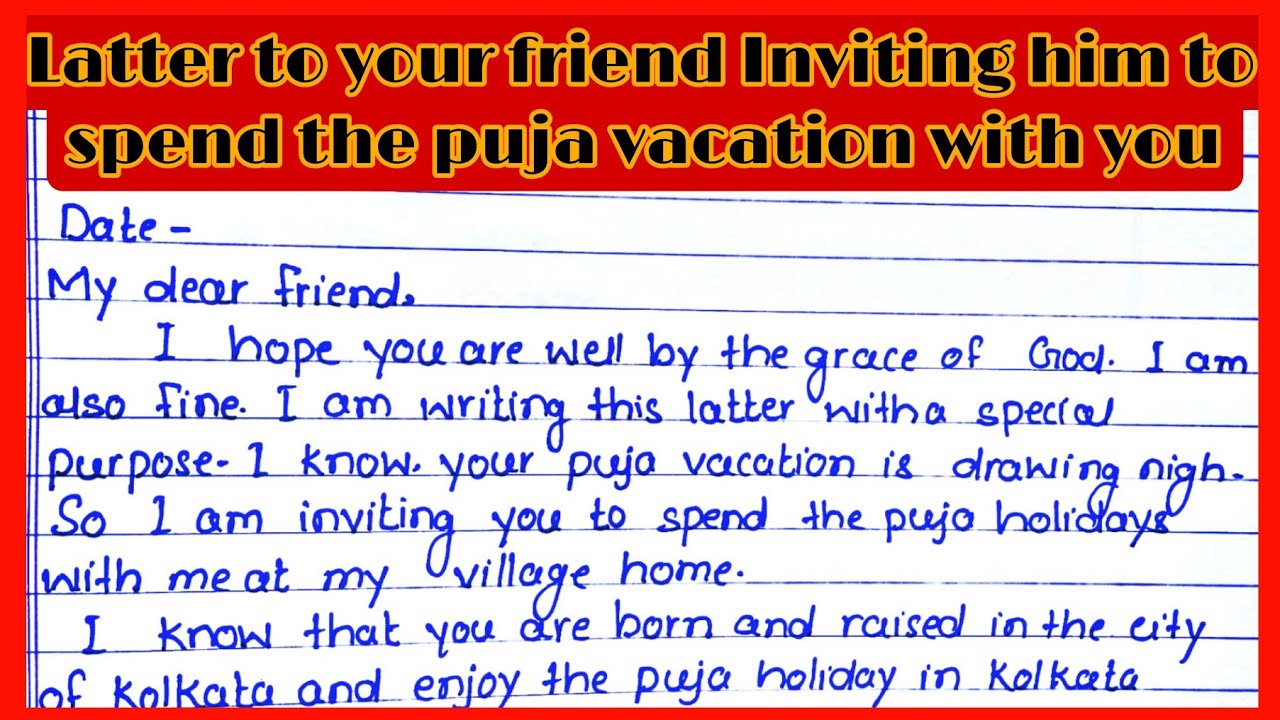 Latter to your friend Inviting him to
spend the puja vacation with you
Date -
My dear friend.
I hope you are well by the grace of God. I am
also fine. I am writing this latter with a special
purpose- I know. your puja vacation is drawing nigh.
So I am inviting you to spend the puja holidays
with me at my village home.
I know that you are born and raised in the city
of Kolkata and enjoy the puja holiday in Kolkata